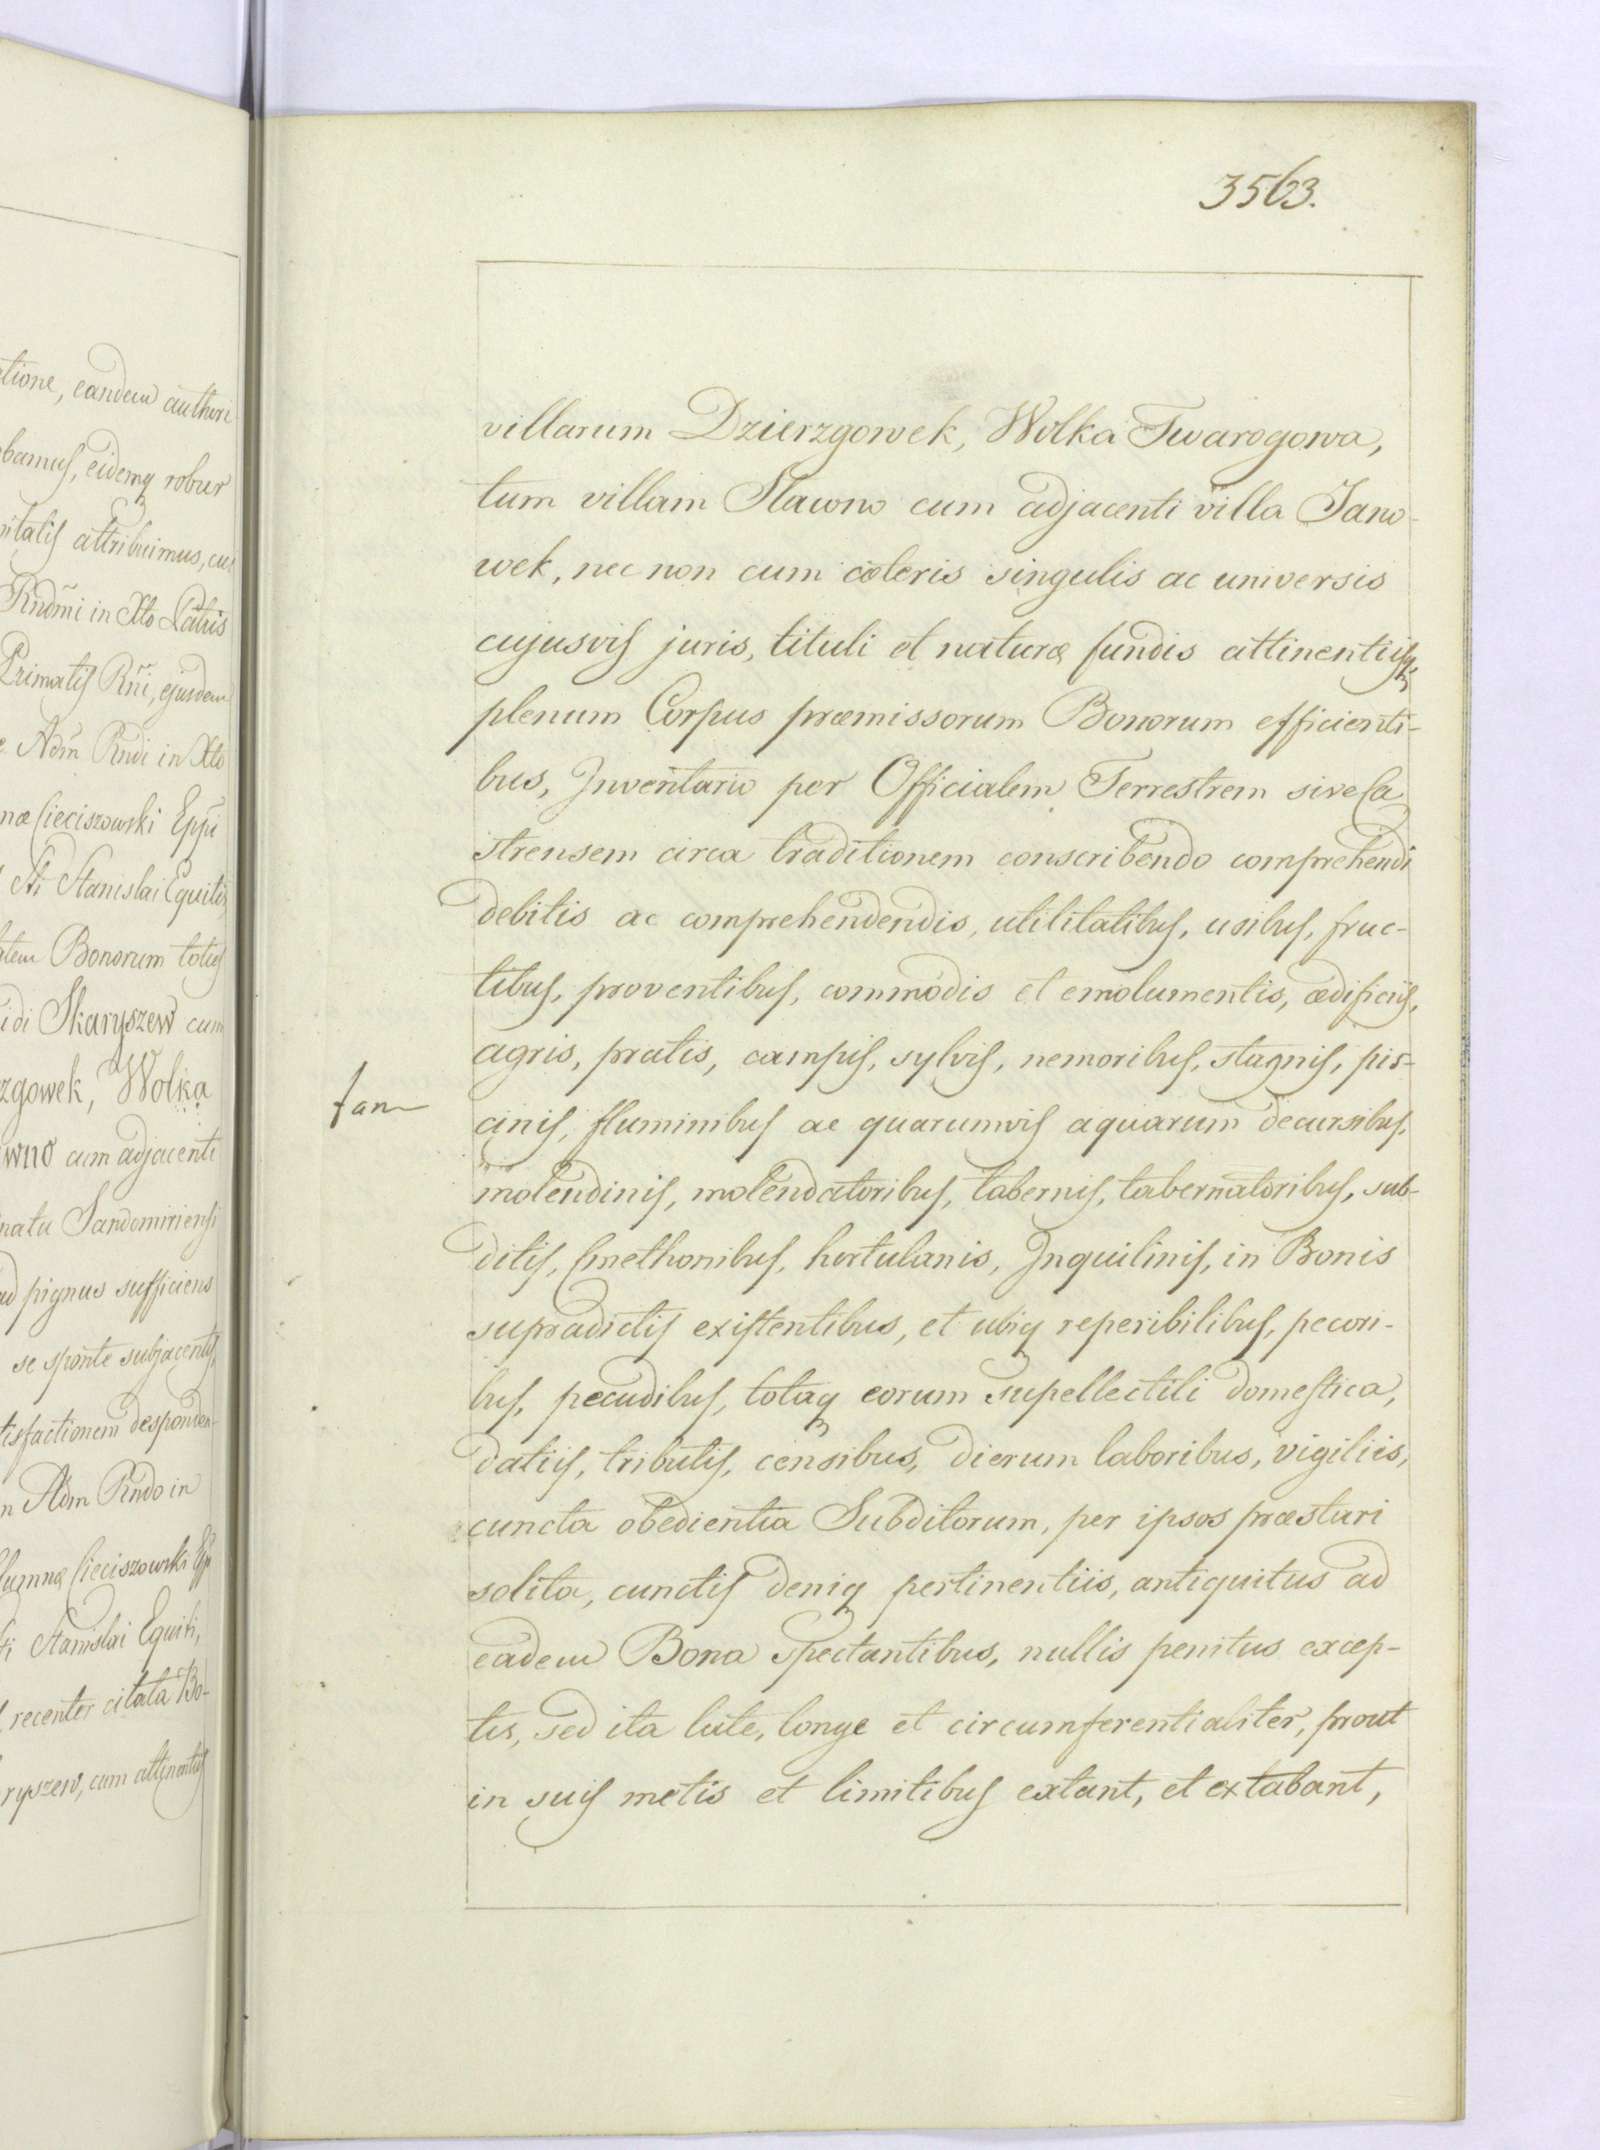 tione, eandem authori
bamus, eidemq robur
pitalis attribuimus, cui
Rndmi in Xto Patris
Primatis Rni, ejusdem
Adm Rndi in Xto
næ Cieciszowski Eppi
Sti Stanislai Equitis
atem Bonorum totius
idi Skaryszew cum
zgowek, Wolka
wno cum adjacenti
natu Sandomiriensi
ad pignus sufficiens
se sponte subjacentis
tisfactionem desponden-
n Adm Rndo in
lumnæ Cieciszowski Epp
ti Stanislai Equiti,
recenter citata Bo-
ryszew, cum attinentiis
3563.
villarum Dzierzgowek, Wolka Twarogowa,
tum villam Sławno cum adjacenti villa Jano-
wek, nec non cum cæteris singulis ac universis
cujusvis juris, tituli et naturæ fundis attinentiisq
plenum Corpus præmissorum Bonorum efficienti-
bus, Inventario per Officialem Terrestrem sive Ca
strensem circa traditionem conscribendo comprehendi
debitis ac comprehendendis, utilitatibus, usibus, fruc-
tibus, proventibus, commodis et emolumentis, ædificiis,
agris, pratis, campis, sylvis, nemoribus, stagnis, pis-
fan
cinis, fluminibus ac quarumvis aquarum decursibus,
molendinis, molendatoribus, tabernis, tabernatoribus, sub-
ditis, Cmethonibus, hortulanis, Inquilinis, in Bonis
supradictis existentibus, et ubiq reperibilibus, pecori-
bus, pecudibus, totaq eorum supellectili domestica,
datiis, tributis, censibus, dierum laboribus, vigiliis,
cuncta obedientia Subditorum, per ipsos præstari
solita, cunctis deniq pertinentiis, antiquitus ad
eadem Bona spectantibus, nullis penitus excep-
tis, sed ita late, longe et circumferentialiter, prout
in suis metis et limitibus extant, et extabant,